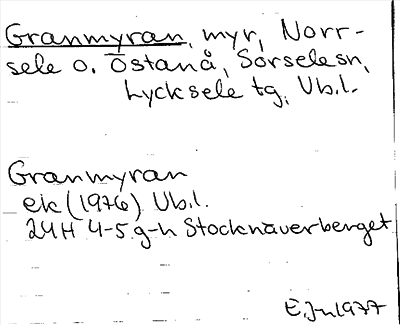 Granmyran, myr, Norr-
sele o. Östanå, Sorselesn,
Lycksele tg, Vb.l.
Granmyran
ek (1976) Vb.l.
24H 4-5 g-h Stocknäverberget
E.Jn 1977